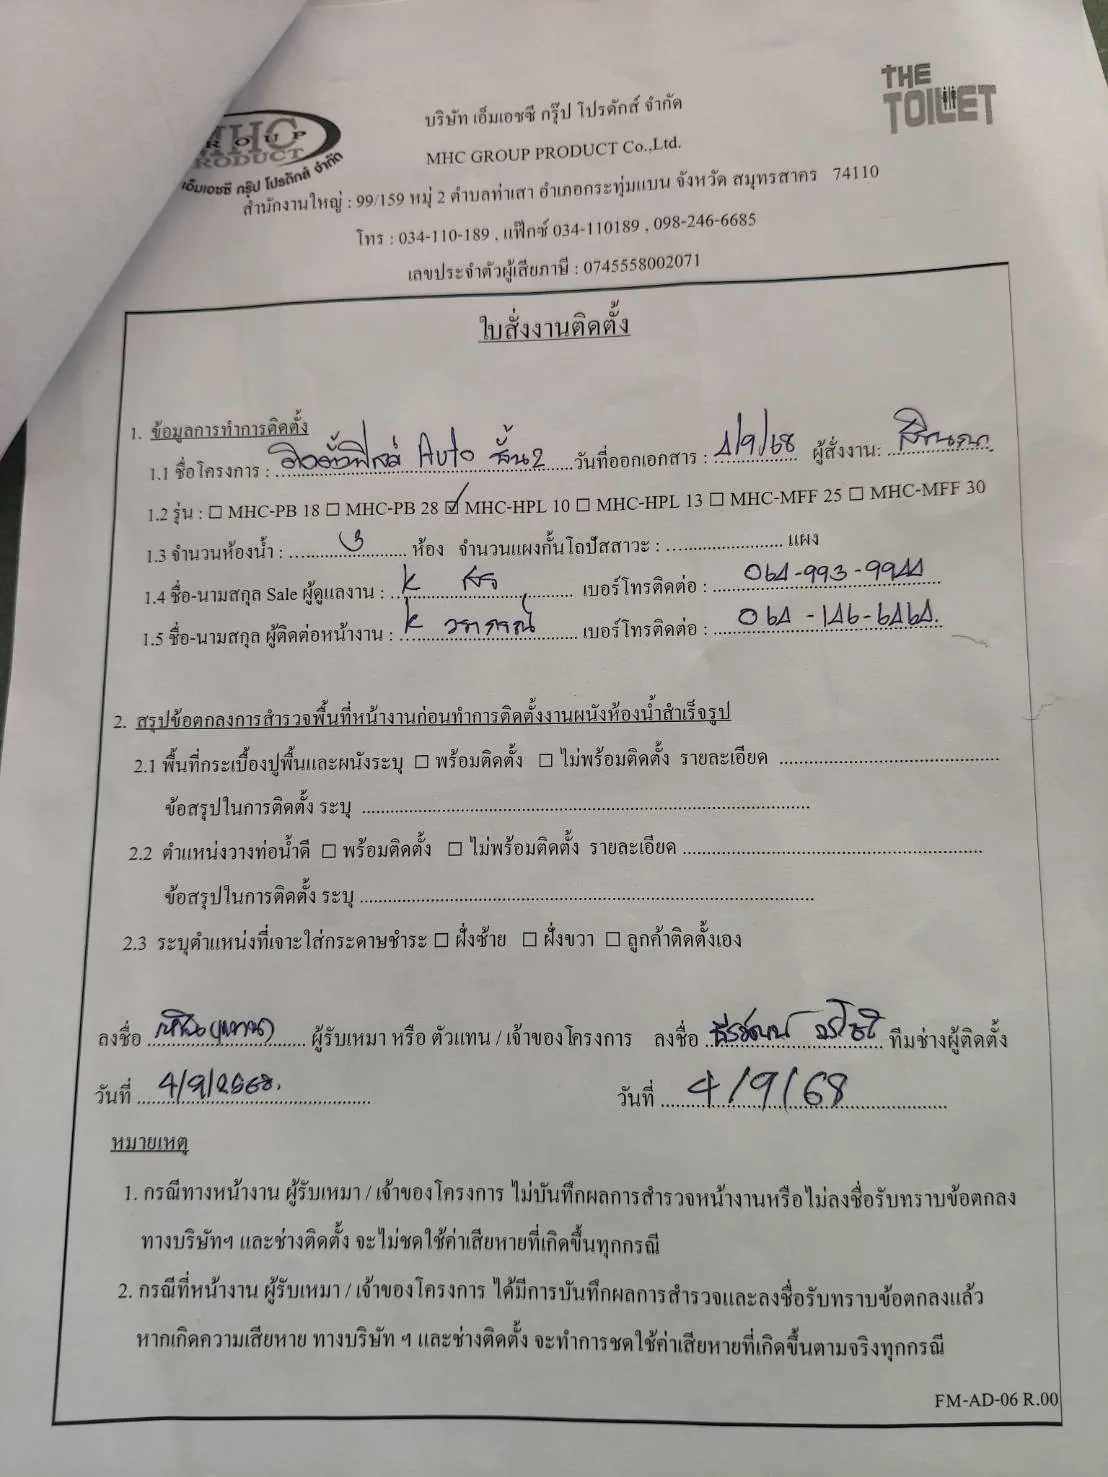 THE
TOILET
MHC
GROUP
PRODUCT
เอ็มเอชซี กรุ๊ป โปรดักส์ จำกัด
บริษัท เอ็มเอชซี กรุ๊ป โปรดักส์ จำกัด
MHC GROUP PRODUCT Co.,Ltd.
สำนักงานใหญ่ : 99/159 หมู่ 2 ตำบลท่าเสา อำเภอกระทุ่มแบน จังหวัด สมุทรสาคร 74110
โทร : 034-110-189 , แฟ๊กซ์ 034-110189 , 098-246-6685
เลขประจำตัวผู้เสียภาษี : 0745558002071
ใบสั่งงานติดตั้ง
1. ข้อมูลการทำการติดตั้ง
1.1 ชื่อโครงการ : Auto ชั้น2 วันที่ออกเอกสาร : 1/9/68 ผู้สั่งงาน:
1.2 รุ่น : ☐ MHC-PB 18 ☐ MHC-PB 28 ☑ MHC-HPL 10 ☐ MHC-HPL 13 ☐ MHC-MFF 25 ☐ MHC-MFF 30
1.3 จำนวนห้องน้ำ : ห้อง จำนวนแผงกั้นโถปัสสาวะ : แผง
1.4 ชื่อ-นามสกุล Sale ผู้ดูแลงาน : K เบอร์โทรติดต่อ : 064-993-9944
1.5 ชื่อ-นามสกุล ผู้ติดต่อหน้างาน : K วราภรณ์ เบอร์โทรติดต่อ : 064-146-6464
2. สรุปข้อตกลงการสำรวจพื้นที่หน้างานก่อนทำการติดตั้งงานผนังห้องน้ำสำเร็จรูป
2.1 พื้นที่กระเบื้องปูพื้นและผนังระบุ ☐ พร้อมติดตั้ง ☐ ไม่พร้อมติดตั้ง รายละเอียด
ข้อสรุปในการติดตั้ง ระบุ
2.2 ตำแหน่งวางท่อน้ำดี ☐ พร้อมติดตั้ง ☐ ไม่พร้อมติดตั้ง รายละเอียด
ข้อสรุปในการติดตั้ง ระบุ
2.3 ระบุตำแหน่งที่เจาะใส่กระดาษชำระ ☐ ฝั่งซ้าย ☐ ฝั่งขวา ☐ ลูกค้าติดตั้งเอง
ลงชื่อ (แทน) ผู้รับเหมา หรือ ตัวแทน / เจ้าของโครงการ ลงชื่อ ทีมช่างผู้ติดตั้ง
วันที่ 4/9/2568. วันที่ 4/9/68
หมายเหตุ
1. กรณีทางหน้างาน ผู้รับเหมา / เจ้าของโครงการ ไม่บันทึกผลการสำรวจหน้างานหรือไม่ลงชื่อรับทราบข้อตกลง
ทางบริษัทฯ และช่างติดตั้ง จะไม่ชดใช้ค่าเสียหายที่เกิดขึ้นทุกกรณี
2. กรณีที่หน้างาน ผู้รับเหมา / เจ้าของโครงการ ได้มีการบันทึกผลการสำรวจและลงชื่อรับทราบข้อตกลงแล้ว
หากเกิดความเสียหาย ทางบริษัท ฯ และช่างติดตั้ง จะทำการชดใช้ค่าเสียหายที่เกิดขึ้นตามจริงทุกกรณี
FM-AD-06 R.00